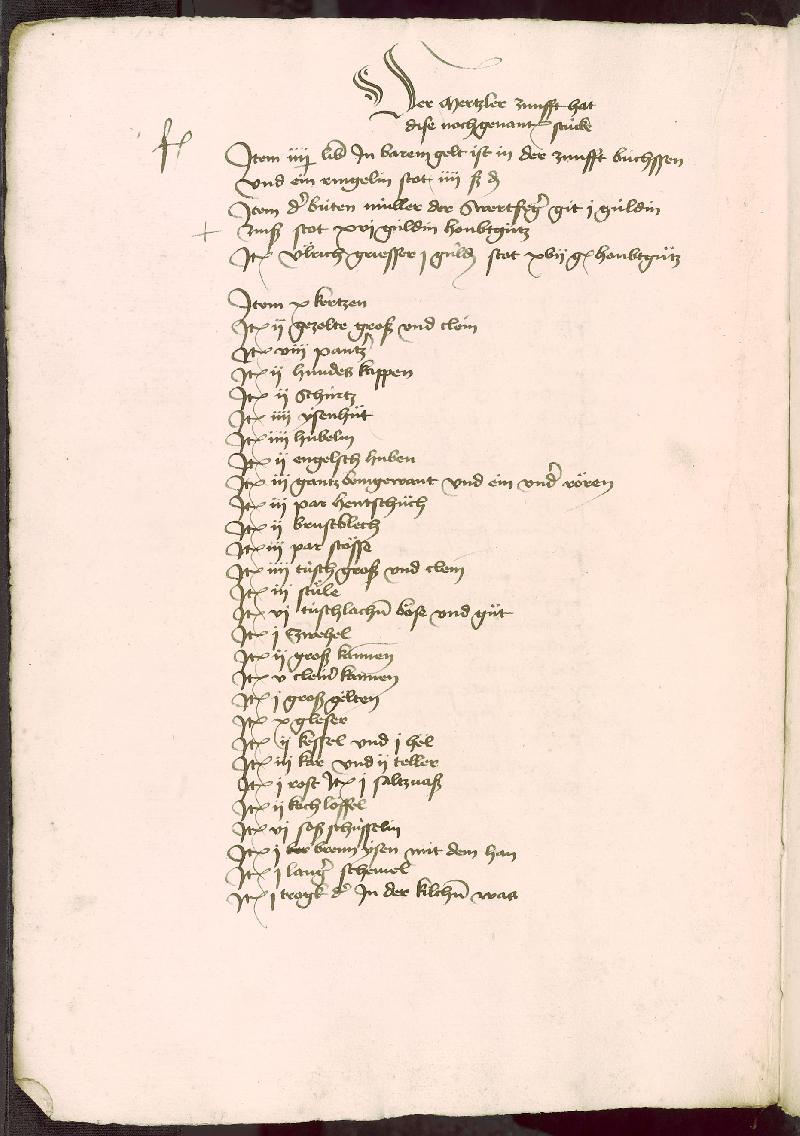 Der Mertzler zunfft hat
dise nochgenant stucke
Item iiij lib In barem gelt ist in der zunfft buchssen
vnd ein ringelin stot iiij ß d
Item d' buten muller der Swertfeg' git j guldin
zinß stot xvj guldin houbtgutz
It Ulrich giesser j guld stot xvij g houbtgutz
Item x kertzen
It ij gezelte groß vnd clein
It viij pantz'
It ij hundes kappen
It ij Schurtz
It iiij ysenhut
It iiij hubelin
It ij engelsch huben
It iij gantz beingewant vnd ein vnd' rören
It iij par hentschüch
It ij brustblech
It iij par stösse
It iiij tusch groß vnd clein
It iij stule
It vj tuschlachen böse vnd güt
It j Zwehel
It ij groß kannen
It v clein kannen
It j groß gelten
It x gleser
It ij kessel vnd j hel
It iij kar vnd ij teller
It j rost It j saltzuaß
It ij kochlöffel
It vj schusselin
It j brenn ysen mit dem han
It j lang' schemel
It j trogk d' In der kilchen was